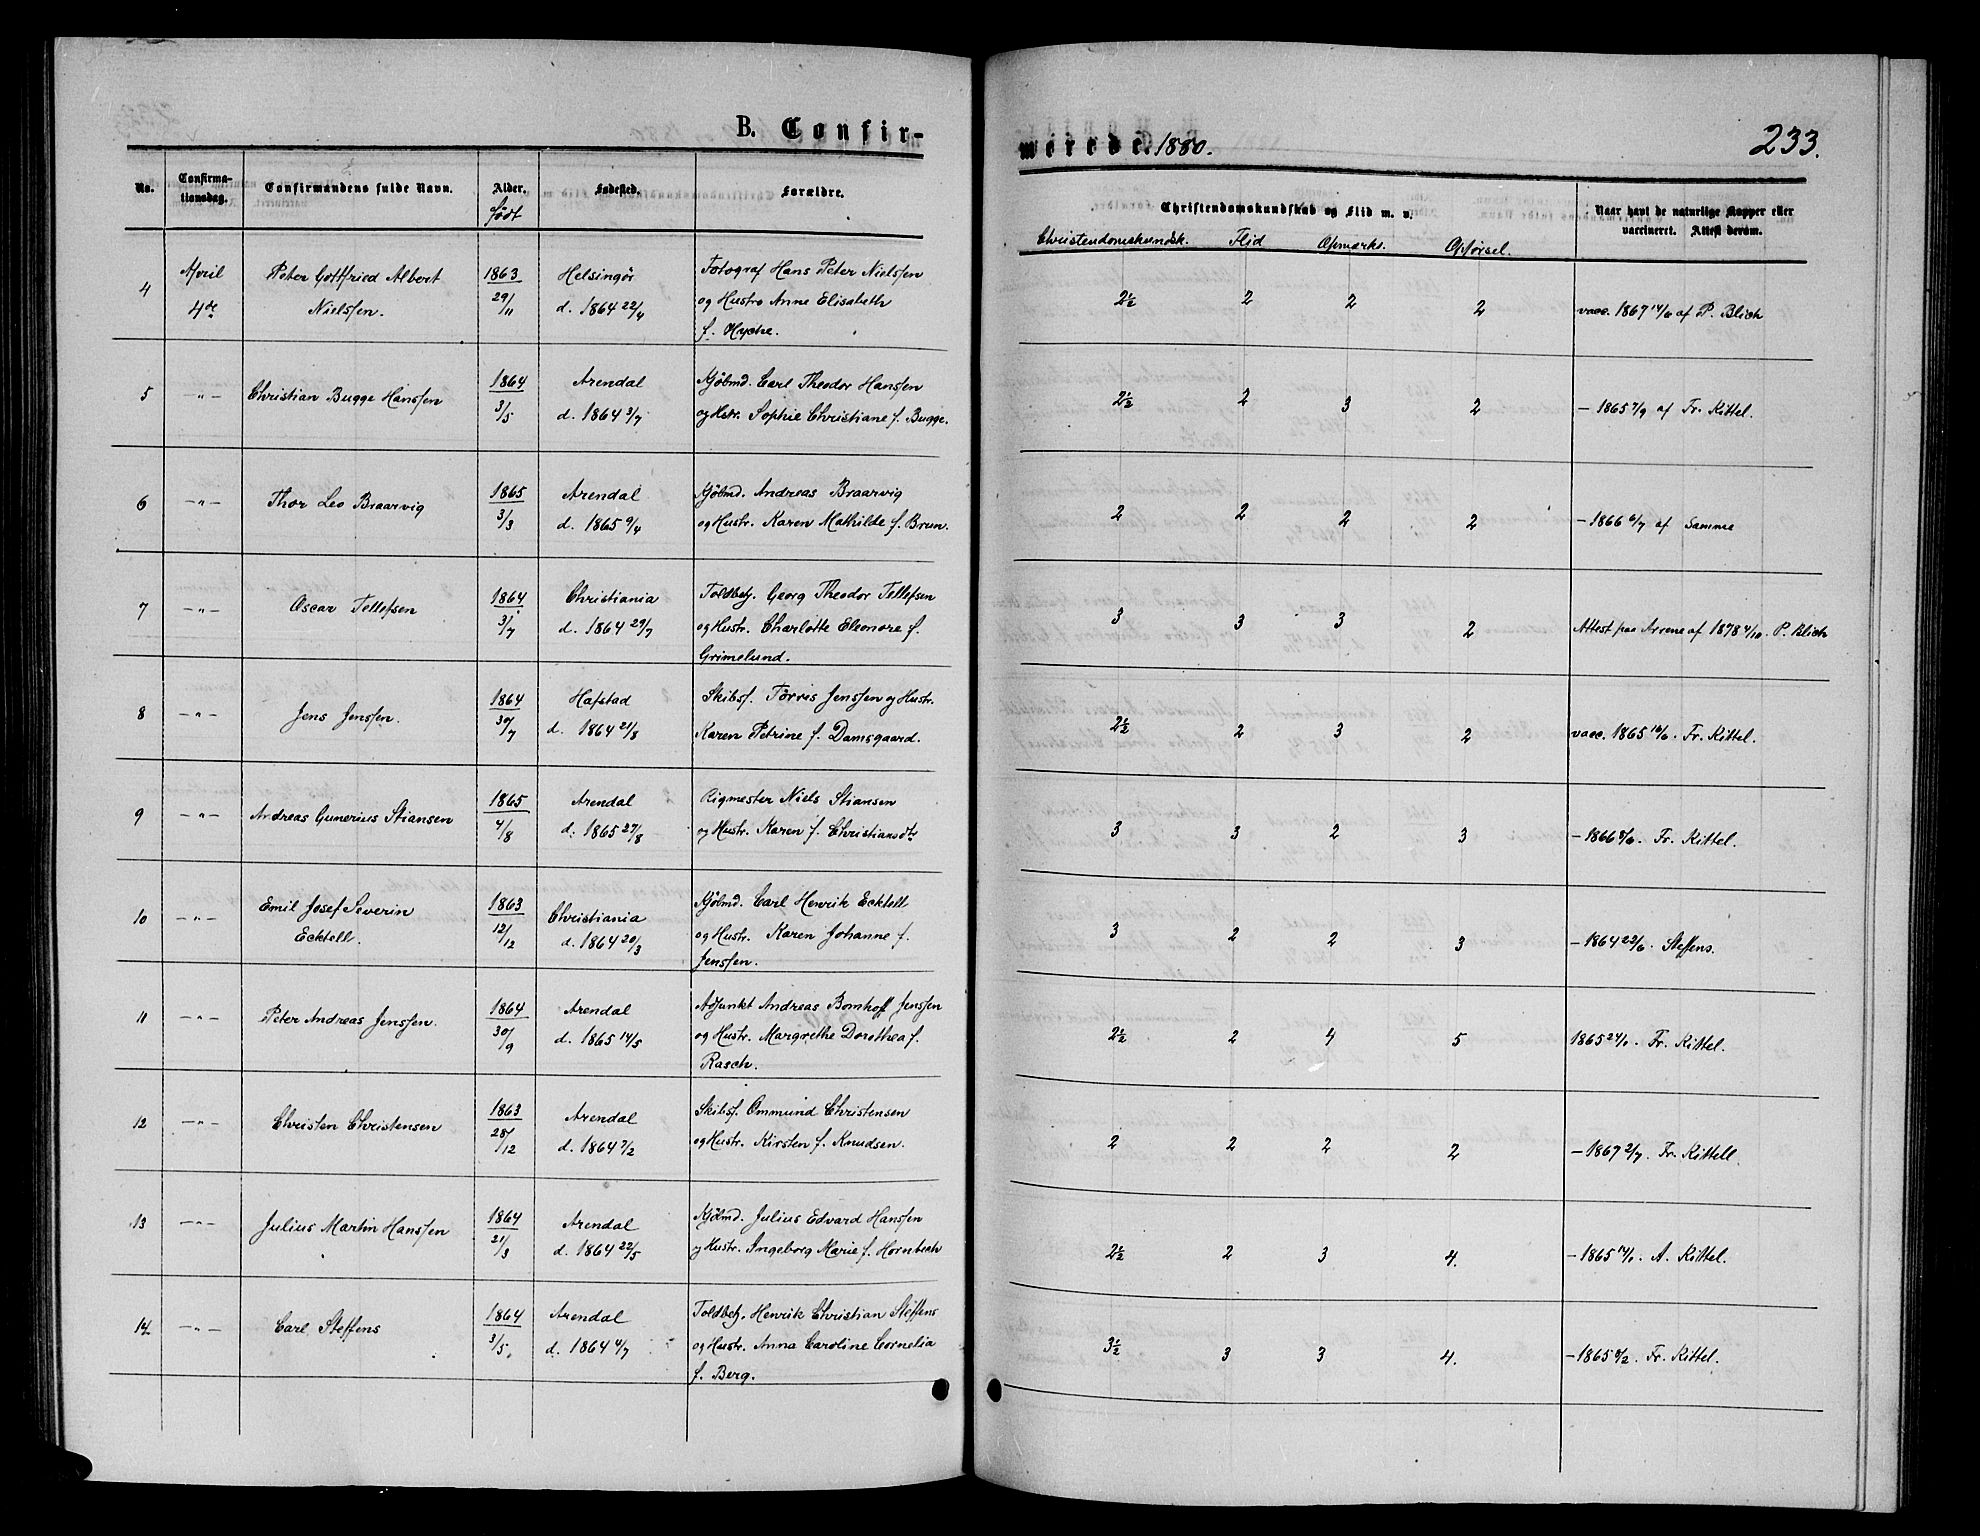 B. Confir-
merede 1880.
233.
No.
Confirma-
tionsdag.
Confirmandens fulde Navn.
Alder.
født
Fødested.
Forældre.
Christendomskundskab og Flid m. v.
Christendomskundsk. Flid Opmærks. Opførsel.
Naar havt de naturlige Kopper eller
vaccineret. Attest derom.
4
April
4de
Peter Gottfried Albert
Nielsen.
1863
29/11
Helsingör
d. 1864 22/4
Fotograf Hans Peter Nielsen
og Hustro Anne Elisabeth
f. Hyche.
2½ 2 2 2
vacc. 1867 14/6 af P. Blich
5
–"–
Christian Bugge Hansen
1864
3/5
Arendal
d. 1864 3/7
Kjöbmd. Carl Theodor Hansen
og Hstr. Sophie Christiane f. Bugge.
2½ 2 3 2
– 1865 7/9 af Fr. Kittel.
6
–"–
Thor Leo Braarvig
1865
3/3
Arendal
d. 1865 9/4
Kjöbmd. Andreas Braarvig
og Hustr. Karen Mathilde f. Brun.
2 2 2 2
– 1866 6/7 af Samme
7
–"–
Oscar Tellefsen
1864
3/7
Christiania
d. 1864 29/7
Toldbetj. Georg Theodor Tellefsen
og Hustr. Charlotte Eleonore f.
Grimelund.
3 3 3 2
Attest paa Arrene af 1878 4/10. P. Blich
8
–"–
Jens Jensen.
1864
30/7
Hafstad
d. 1864 21/8
Skibsf. Torris Jensen og Hustr.
Karen Petrine f. Damsgaard.
2½ 2 3 2
vacc. 1865 10/6. Fr. Kittel.
9
–"–
Andreas Gunerius Stiansen
1865
4/8
Arendal
d. 1865 27/8
Rigmester Niels Stiansen
og Hustr. Karen f. Christiansdtr
3 3 2 3
– 1866 8/6. Fr. Kittel.
10
–"–
Emil Josef Severin
Ecktell.
1863
12/12
Christiania
d. 1864 20/3
Kjöbmd. Carl Henrik Ecktell
og Hustr. Karen Johanne f.
Jensen.
3 2 2 3
– 1864 22/6. Steffens.
11
–"–
Peter Andreas Jensen.
1864
30/9
Arendal
d. 1865 14/5
Adjunkt Andreas Bomhoff Jensen
og Hustr. Margrethe Dorothea f.
Rasch.
2½ 2 4 5
1865 Fr. Kittel.
12
–"–
Christen Christensen
1863
28/12
Arendal
d. 1864 7/2
Skibsf. Ommund Christensen
og Hustr. Kirsten f. Knudsen.
2 2 2 2
– 1867 2/7. Fr. Kittell.
13
–"–
Julius Martin Hansen
1864
21/3
Arendal
d. 1864 22/5
Kjöbmd. Julius Edvard Hansen
og Hustr. Ingeborg Marie f. Hornbech
2½ 2 3 4.
– 1865 A. Kittel.
14
–"–
Carl Steffens
1864
3/5.
Arendal
d. 1864 4/7
Toldbetj. Henrik Christian Steffens
og Hustr. Anna Caroline Cornelia
f. Berg.
3½ 3 3 4.
– 1865 8/2. Fr. Kittel.